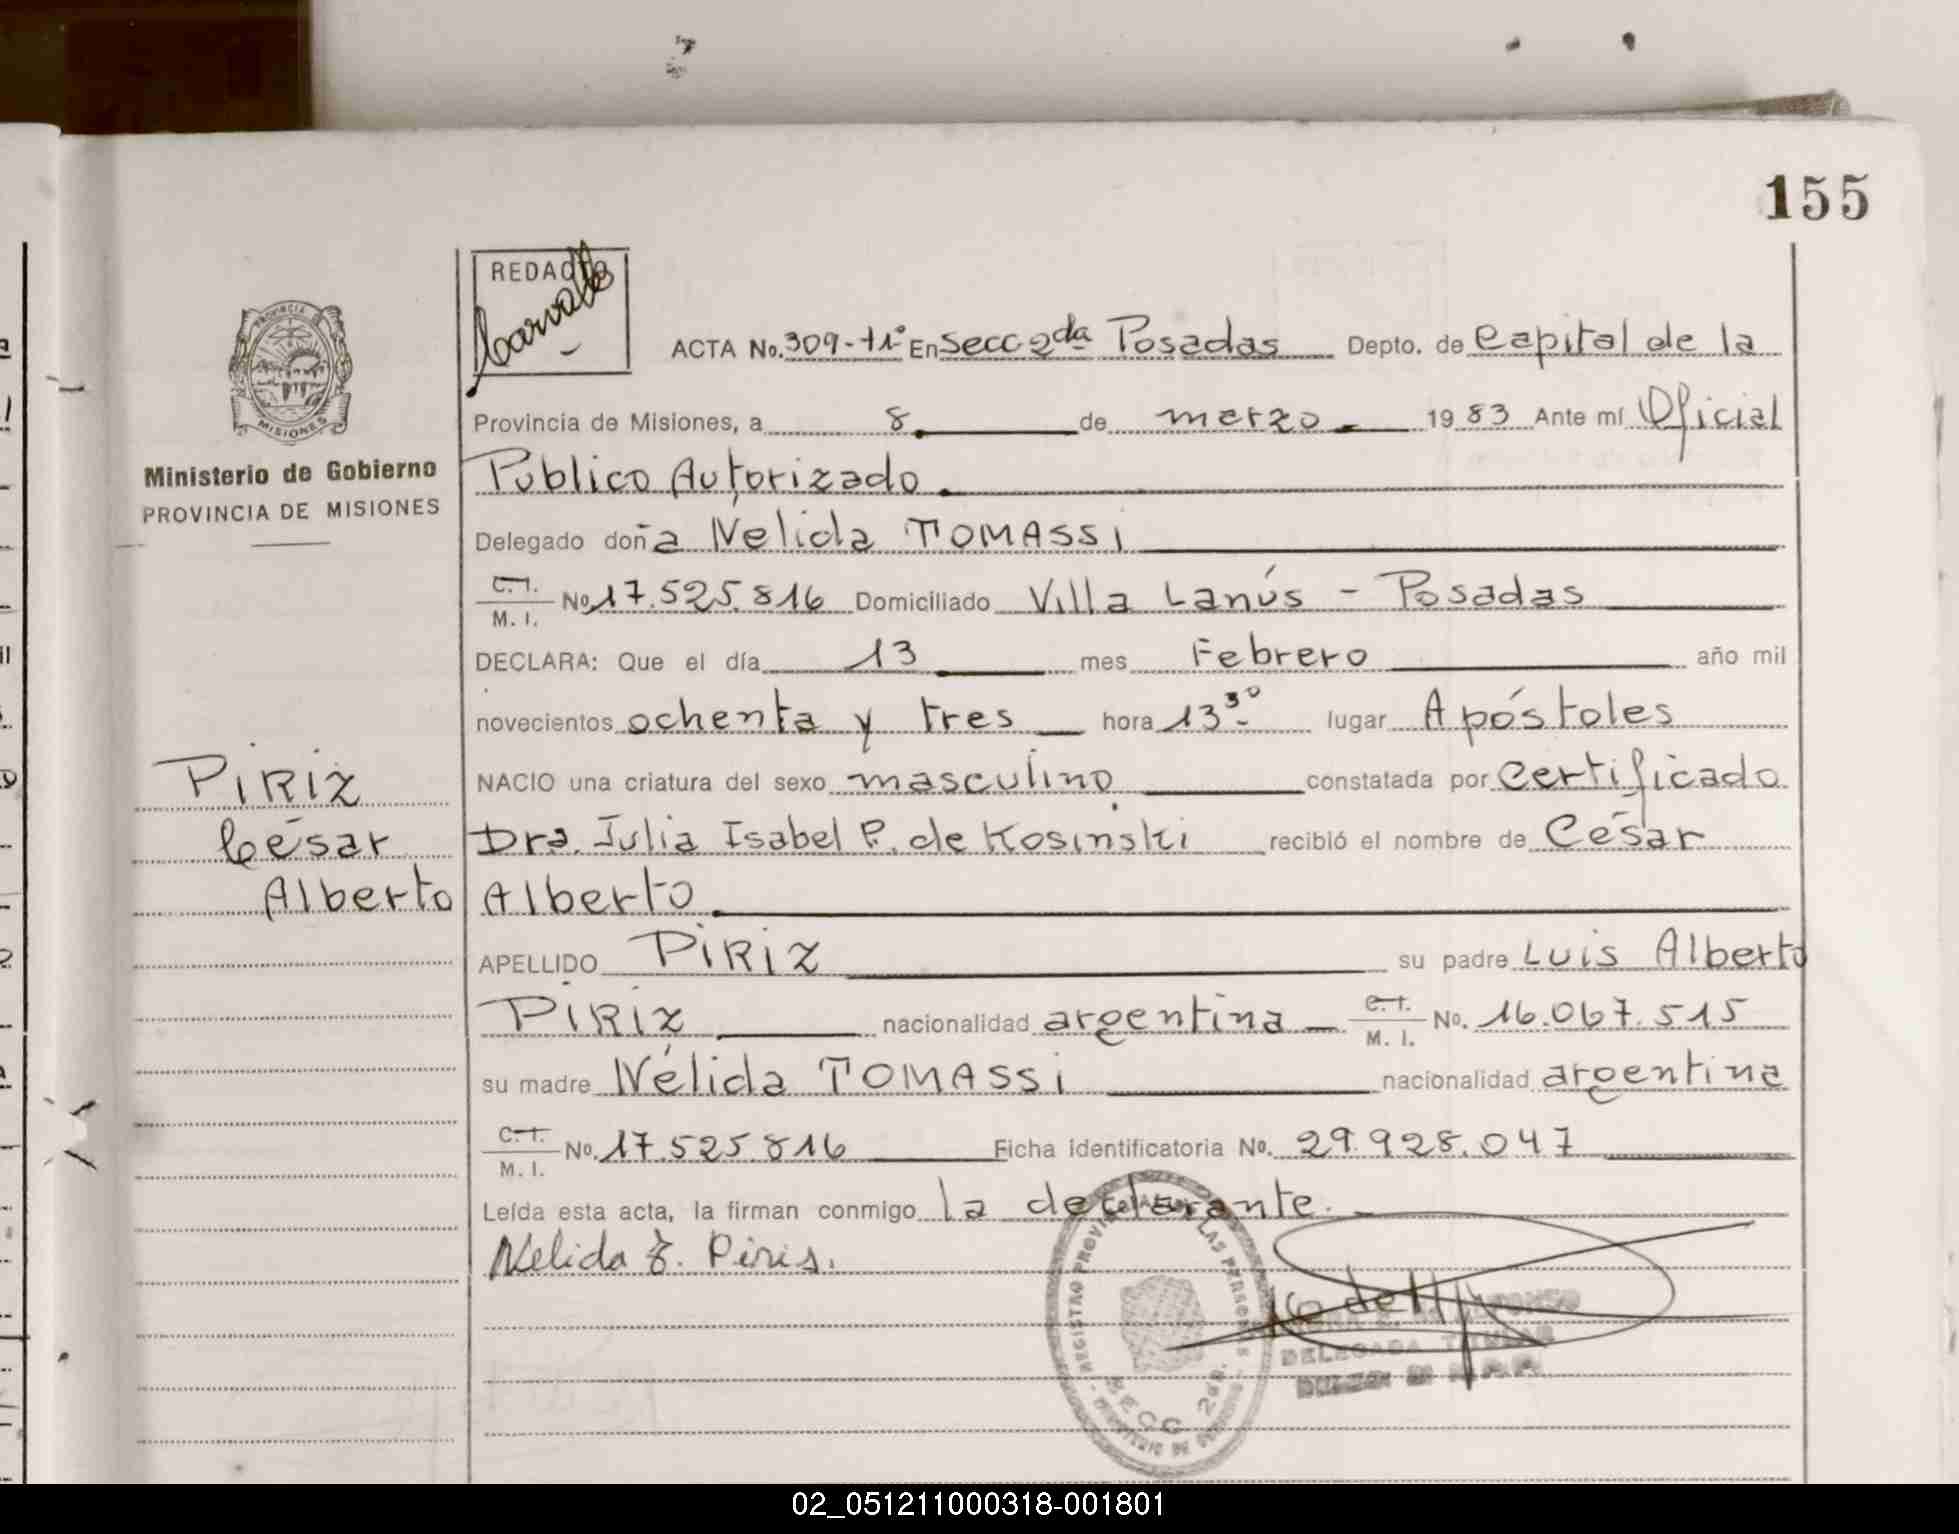 155
REDACTO
Carvallo
ACTA No. 309-T1º En Secc 2da Posadas Depto. de Capital de la
Provincia de Misiones, a 8 de marzo 1983 Ante mí Oficial
Ministerio de Gobierno
PROVINCIA DE MISIONES
Público Autorizado
Delegado doña Nelida TOMASSI
C.I. M. I. No 17.525.816 Domiciliado Villa Lanús - Posadas
DECLARA: Que el día 13 mes Febrero año mil
novecientos ochenta y tres hora 13 30 lugar Apóstoles
PIRIZ
César
Alberto
NACIO una criatura del sexo masculino constatada por Certificado
Dra. Julia Isabel P. de Kosinski recibió el nombre de César
Alberto
APELLIDO PIRIZ su padre Luis Alberto
PIRIZ nacionalidad argentina C.I. M. I. No. 16.067.515
su madre Nélida TOMASSI nacionalidad argentina
C.I. M. I. No. 17.525.816 Ficha identificatoria No. 29.928.047
Leída esta acta, la firman conmigo la declarante.
Nelida T. Piris.
DELEGADA TITULAR
SECC 2da.
02_051211000318-001801